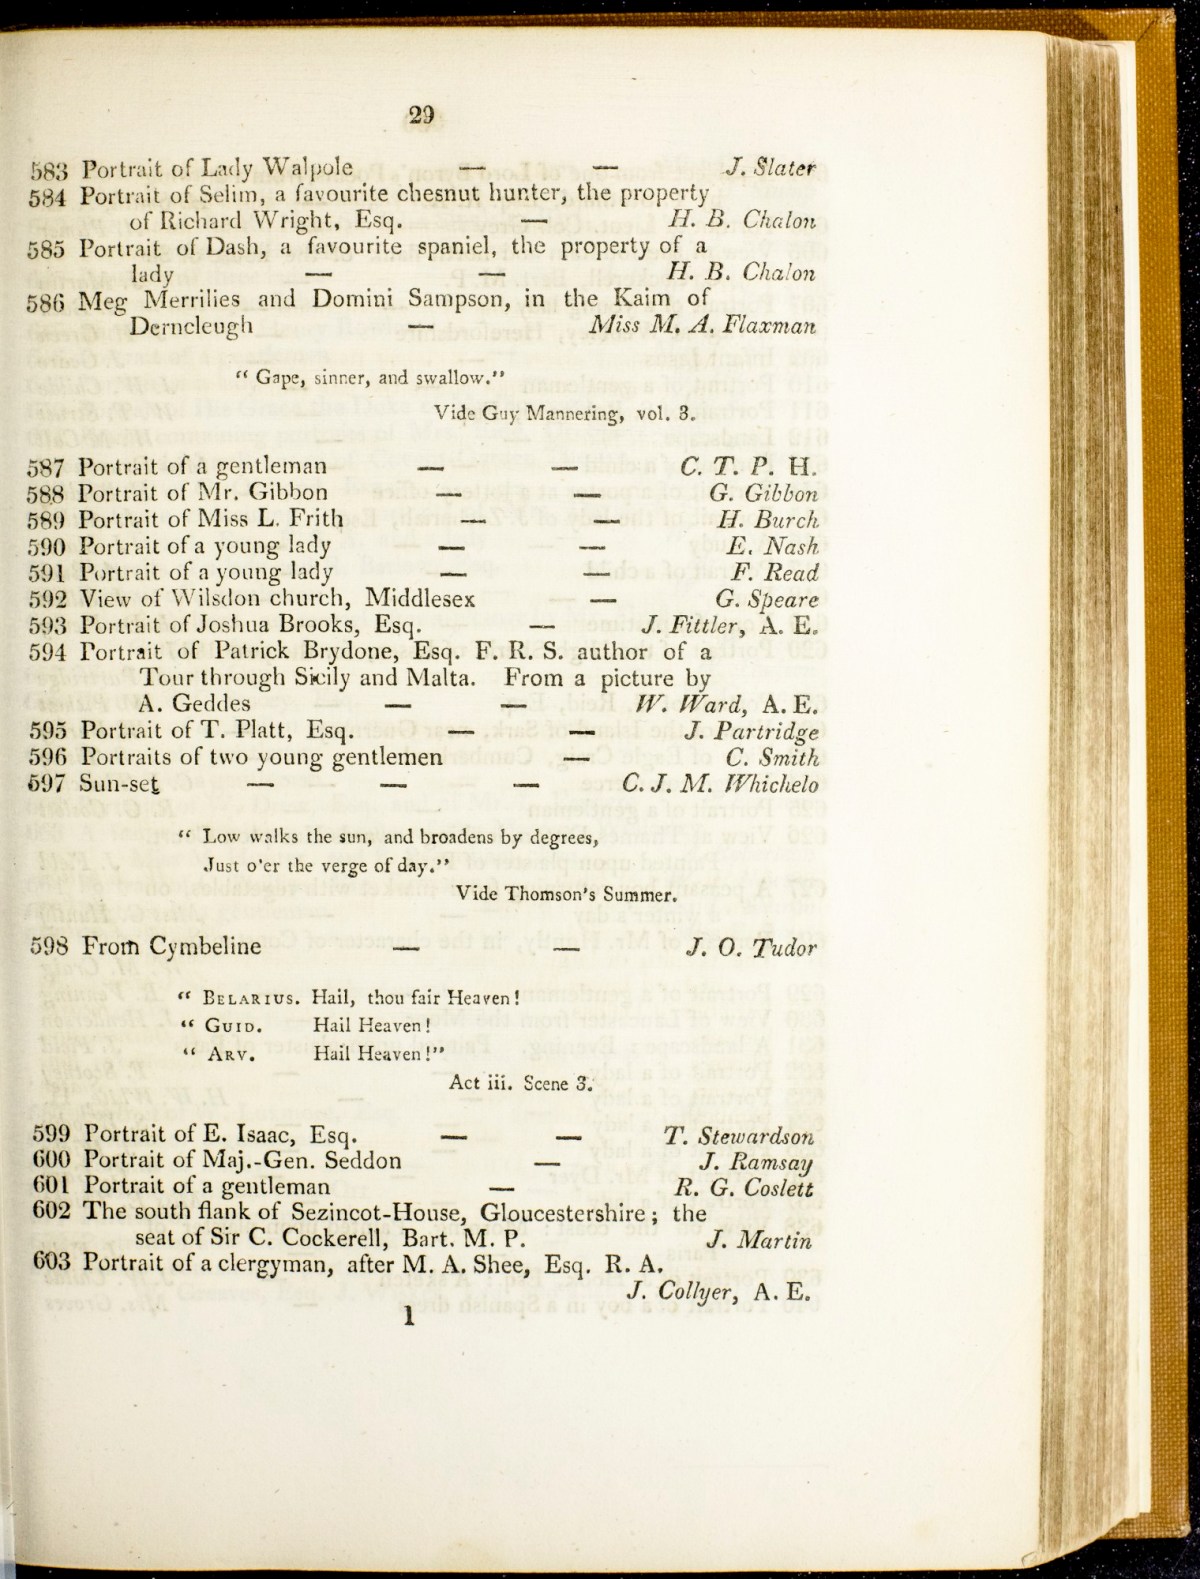 29
583 Portrait of Lady Walpole — — J. Slater
584 Portrait of Selim, a favourite chesnut hunter, the property
of Richard Wright, Esq. — H. B. Chalon
585 Portrait of Dash, a favourite spaniel, the property of a
lady — — H. B. Chalon
586 Meg Merrilies and Domini Sampson, in the Kaim of
Derncleugh — Miss M. A. Flaxman
“ Gape, sinner, and swallow.”
Vide Guy Mannering, vol. 3.
587 Portrait of a gentleman — — C. T. P. H.
588 Portrait of Mr. Gibbon — — G. Gibbon
589 Portrait of Miss L. Frith — — H. Burch
590 Portrait of a young lady — — E. Nash
591 Portrait of a young lady — — F. Read
592 View of Wilsdon church, Middlesex — G. Speare
593 Portrait of Joshua Brooks, Esq. — J. Fittler, A. E.
594 Portrait of Patrick Brydone, Esq. F. R. S. author of a
Tour through Sicily and Malta. From a picture by
A. Geddes — — W. Ward, A. E.
595 Portrait of T. Platt, Esq. — — J. Partridge
596 Portraits of two young gentlemen — C. Smith
597 Sun-set — — — C. J. M. Whichelo
“ Low walks the sun, and broadens by degrees,
Just o'er the verge of day.”
Vide Thomson's Summer.
598 From Cymbeline — — J. O. Tudor
“ BELARIUS. Hail, thou fair Heaven!
“ GUID. Hail Heaven!
“ ARV. Hail Heaven!”
Act iii. Scene 3.
599 Portrait of E. Isaac, Esq. — — T. Stewardson
600 Portrait of Maj.-Gen. Seddon — J. Ramsay
601 Portrait of a gentleman — R. G. Coslett
602 The south flank of Sezincot-House, Gloucestershire; the
seat of Sir C. Cockerell, Bart. M. P. J. Martin
603 Portrait of a clergyman, after M. A. Shee, Esq. R. A.
J. Collyer, A. E.
1